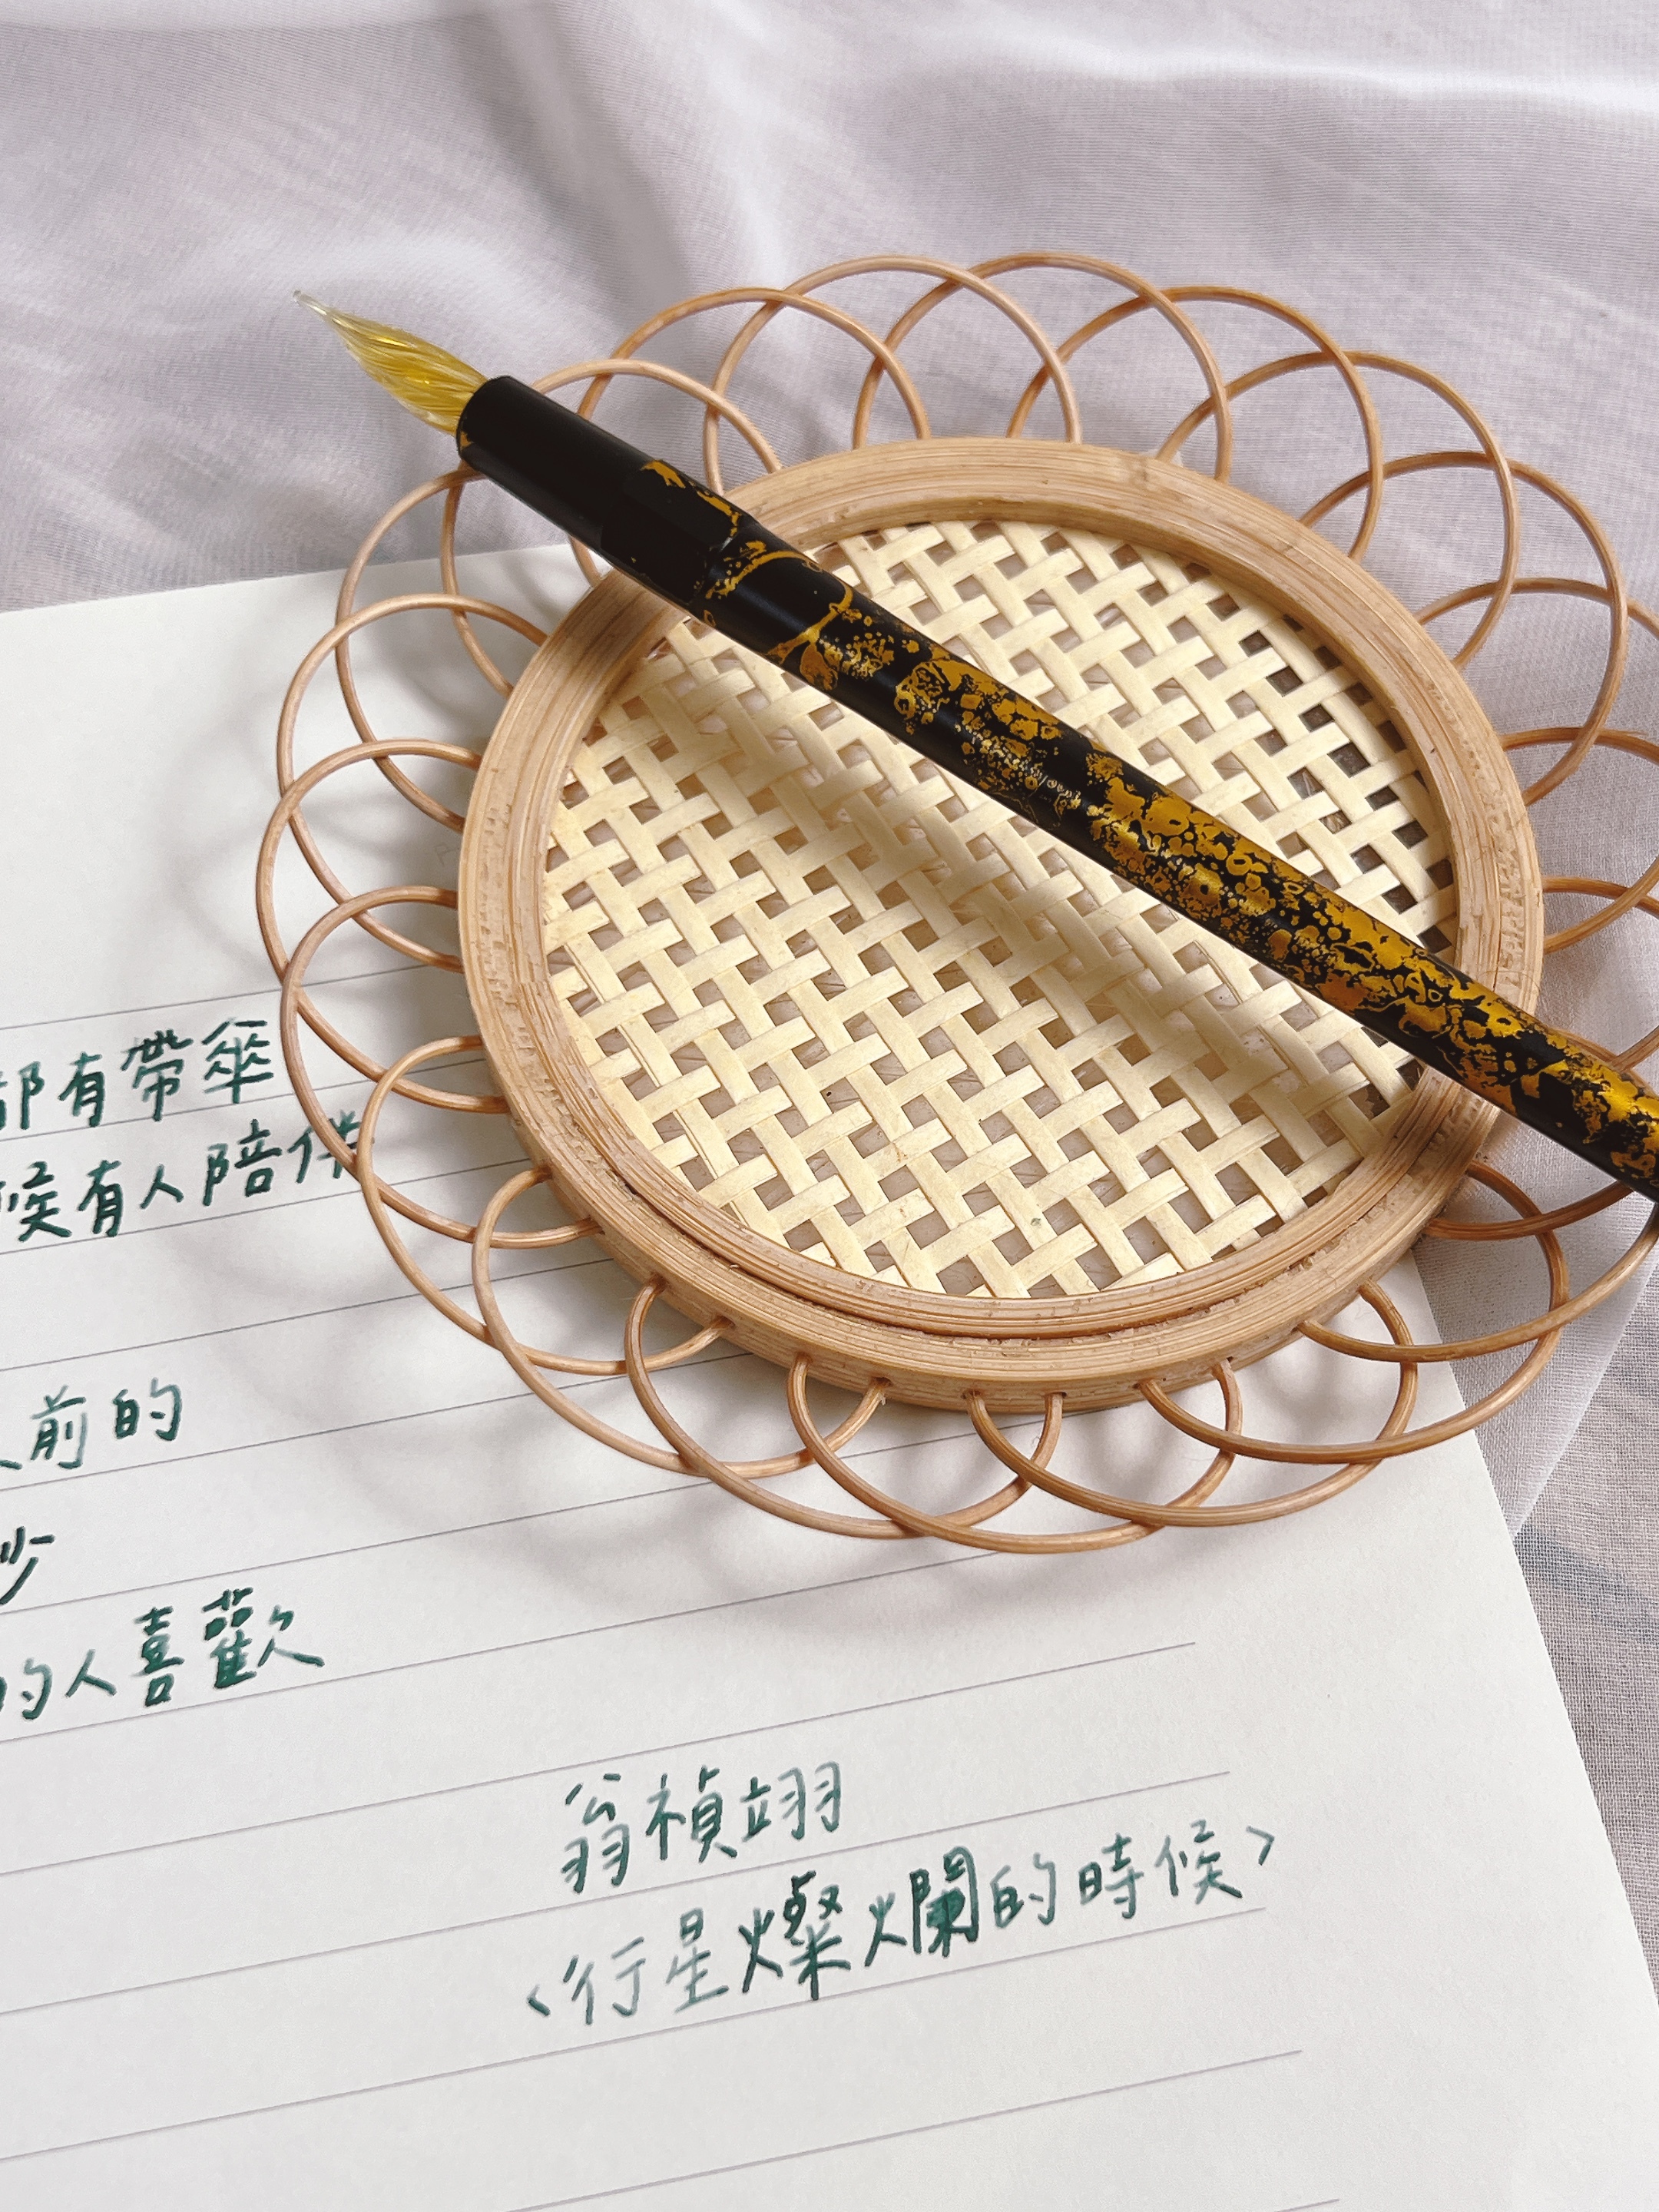 都有帶傘
候有人陪伴
前的
的人喜歡
翁禎翊
〈行星燦爛的時候〉